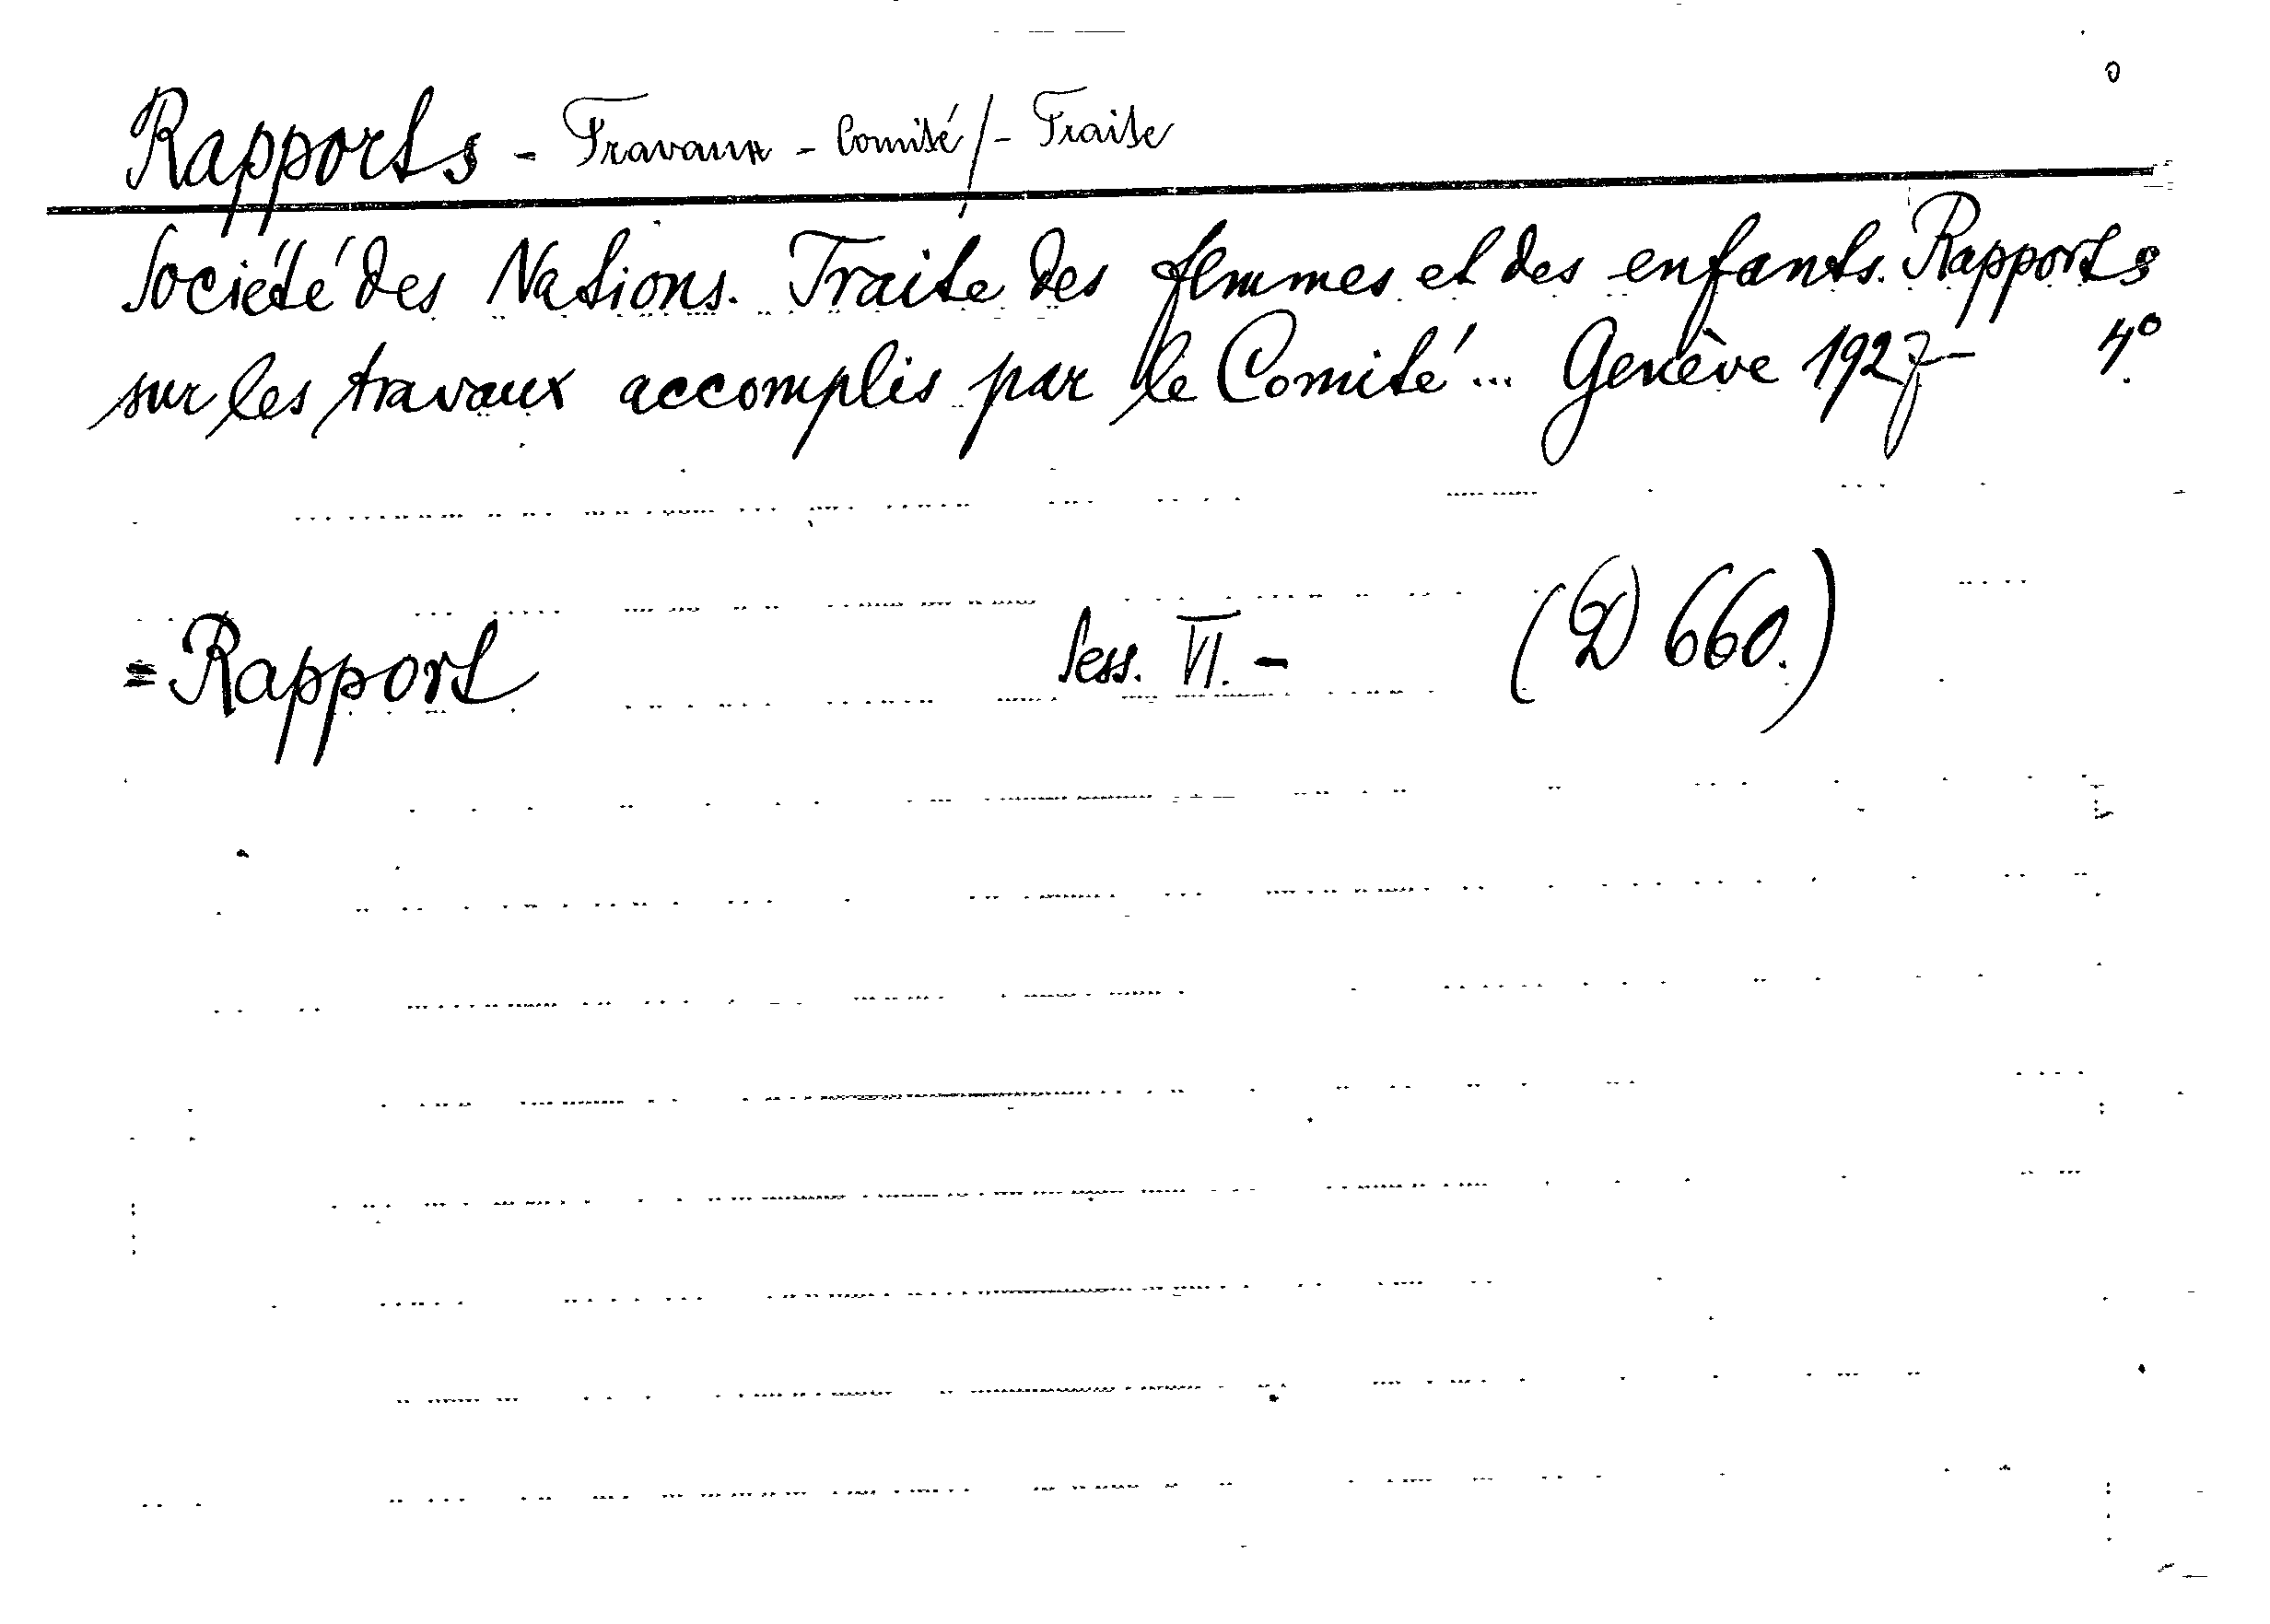 Rapports - Travaux - Comité/- Traite
Société des Nations. Traite des femmes et des enfants. Rapports
sur les travaux accomplis par le Comité... Genève 1927- 4°.
= Rapport Sess. VI. - (D 660.)